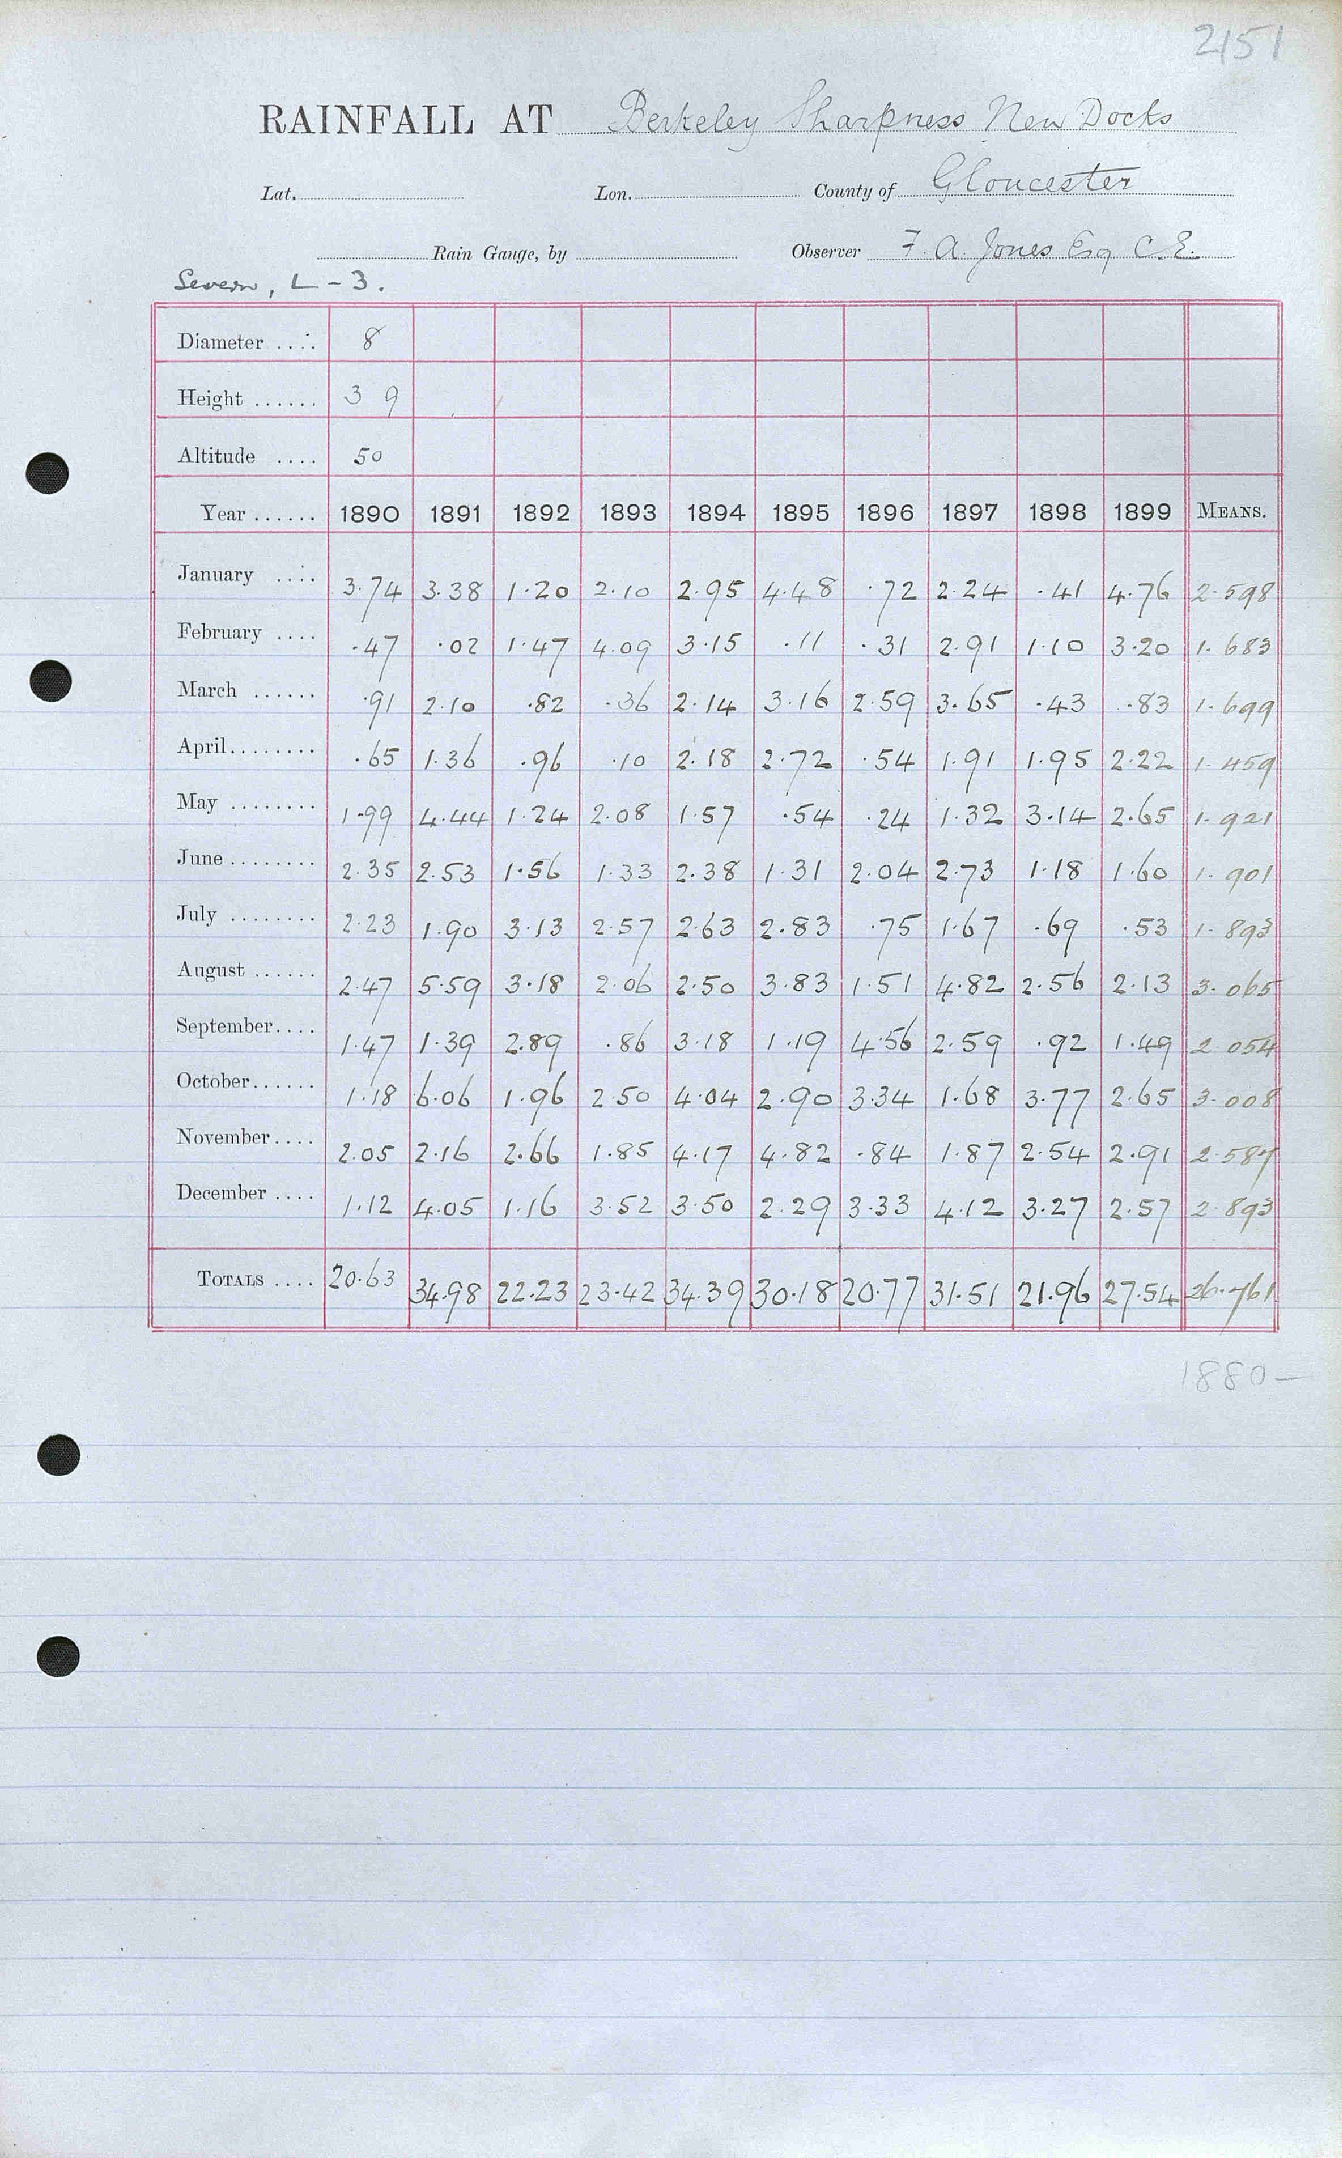 2151
RAINFALL AT Berkeley Sharpness New Docks
Lat. Lon. County of Gloucester
Rain Gauge, by Observer F. A. Jones Esq C. E.
Severn, L - 3.
Diameter .... 8
Height ...... 3 9
Altitude .... 50
Year ...... 1890 1891 1892 1893 1894 1895 1896 1897 1898 1899 MEANS.
January .... 3.74 3.38 1.20 2.10 2.95 4.48 .72 2.24 .41 4.76 2.598
February .... .47 .02 1.47 4.09 3.15 .11 .31 2.91 1.10 3.20 1.683
March ...... .91 2.10 .82 .36 2.14 3.16 2.59 3.65 .43 .83 1.699
April........ .65 1.36 .96 .10 2.18 2.72 .54 1.91 1.95 2.22 1.459
May ........ 1.99 4.44 1.24 2.08 1.57 .54 .24 1.32 3.14 2.65 1.921
June ........ 2.35 2.53 1.56 1.33 2.38 1.31 2.04 2.73 1.18 1.60 1.901
July ........ 2.23 1.90 3.13 2.57 2.63 2.83 .75 1.67 .69 .53 1.893
August ...... 2.47 5.59 3.18 2.06 2.50 3.83 1.51 4.82 2.56 2.13 3.065
September.... 1.47 1.39 2.89 .86 3.18 1.19 4.56 2.59 .92 1.49 2.054
October...... 1.18 6.06 1.96 2.50 4.04 2.90 3.34 1.68 3.77 2.65 3.008
November.... 2.05 2.16 2.66 1.85 4.17 4.82 .84 1.87 2.54 2.91 2.587
December .... 1.12 4.05 1.16 3.52 3.50 2.29 3.33 4.12 3.27 2.57 2.893
TOTALS .... 20.63 34.98 22.23 23.42 34.39 30.18 20.77 31.51 21.96 27.54 26.761
1880-